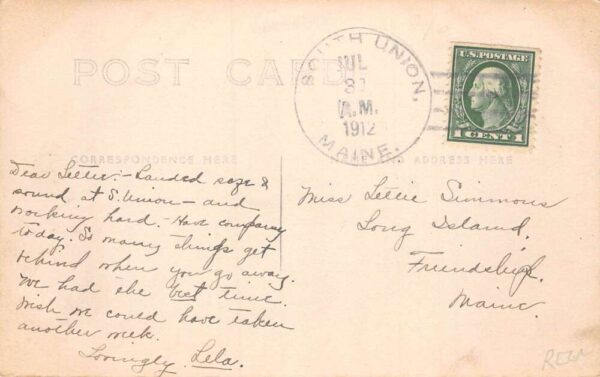 POST CARD
SOUTH UNION,
JUL
31
A.M.
1912
MAINE.
U.S. POSTAGE
1 CENT 1
CORRESPONDENCE HERE
ADDRESS HERE
Dear Lettie:- Landed safe &
sound at S. Union - and
working hard. - Have company
today. So many things get
behind when you go away.
We had the best time.
Wish we could have taken
another week.
Lovingly Lela.
Miss Lettie Simmons
Long Island,
Friendship,
Maine.